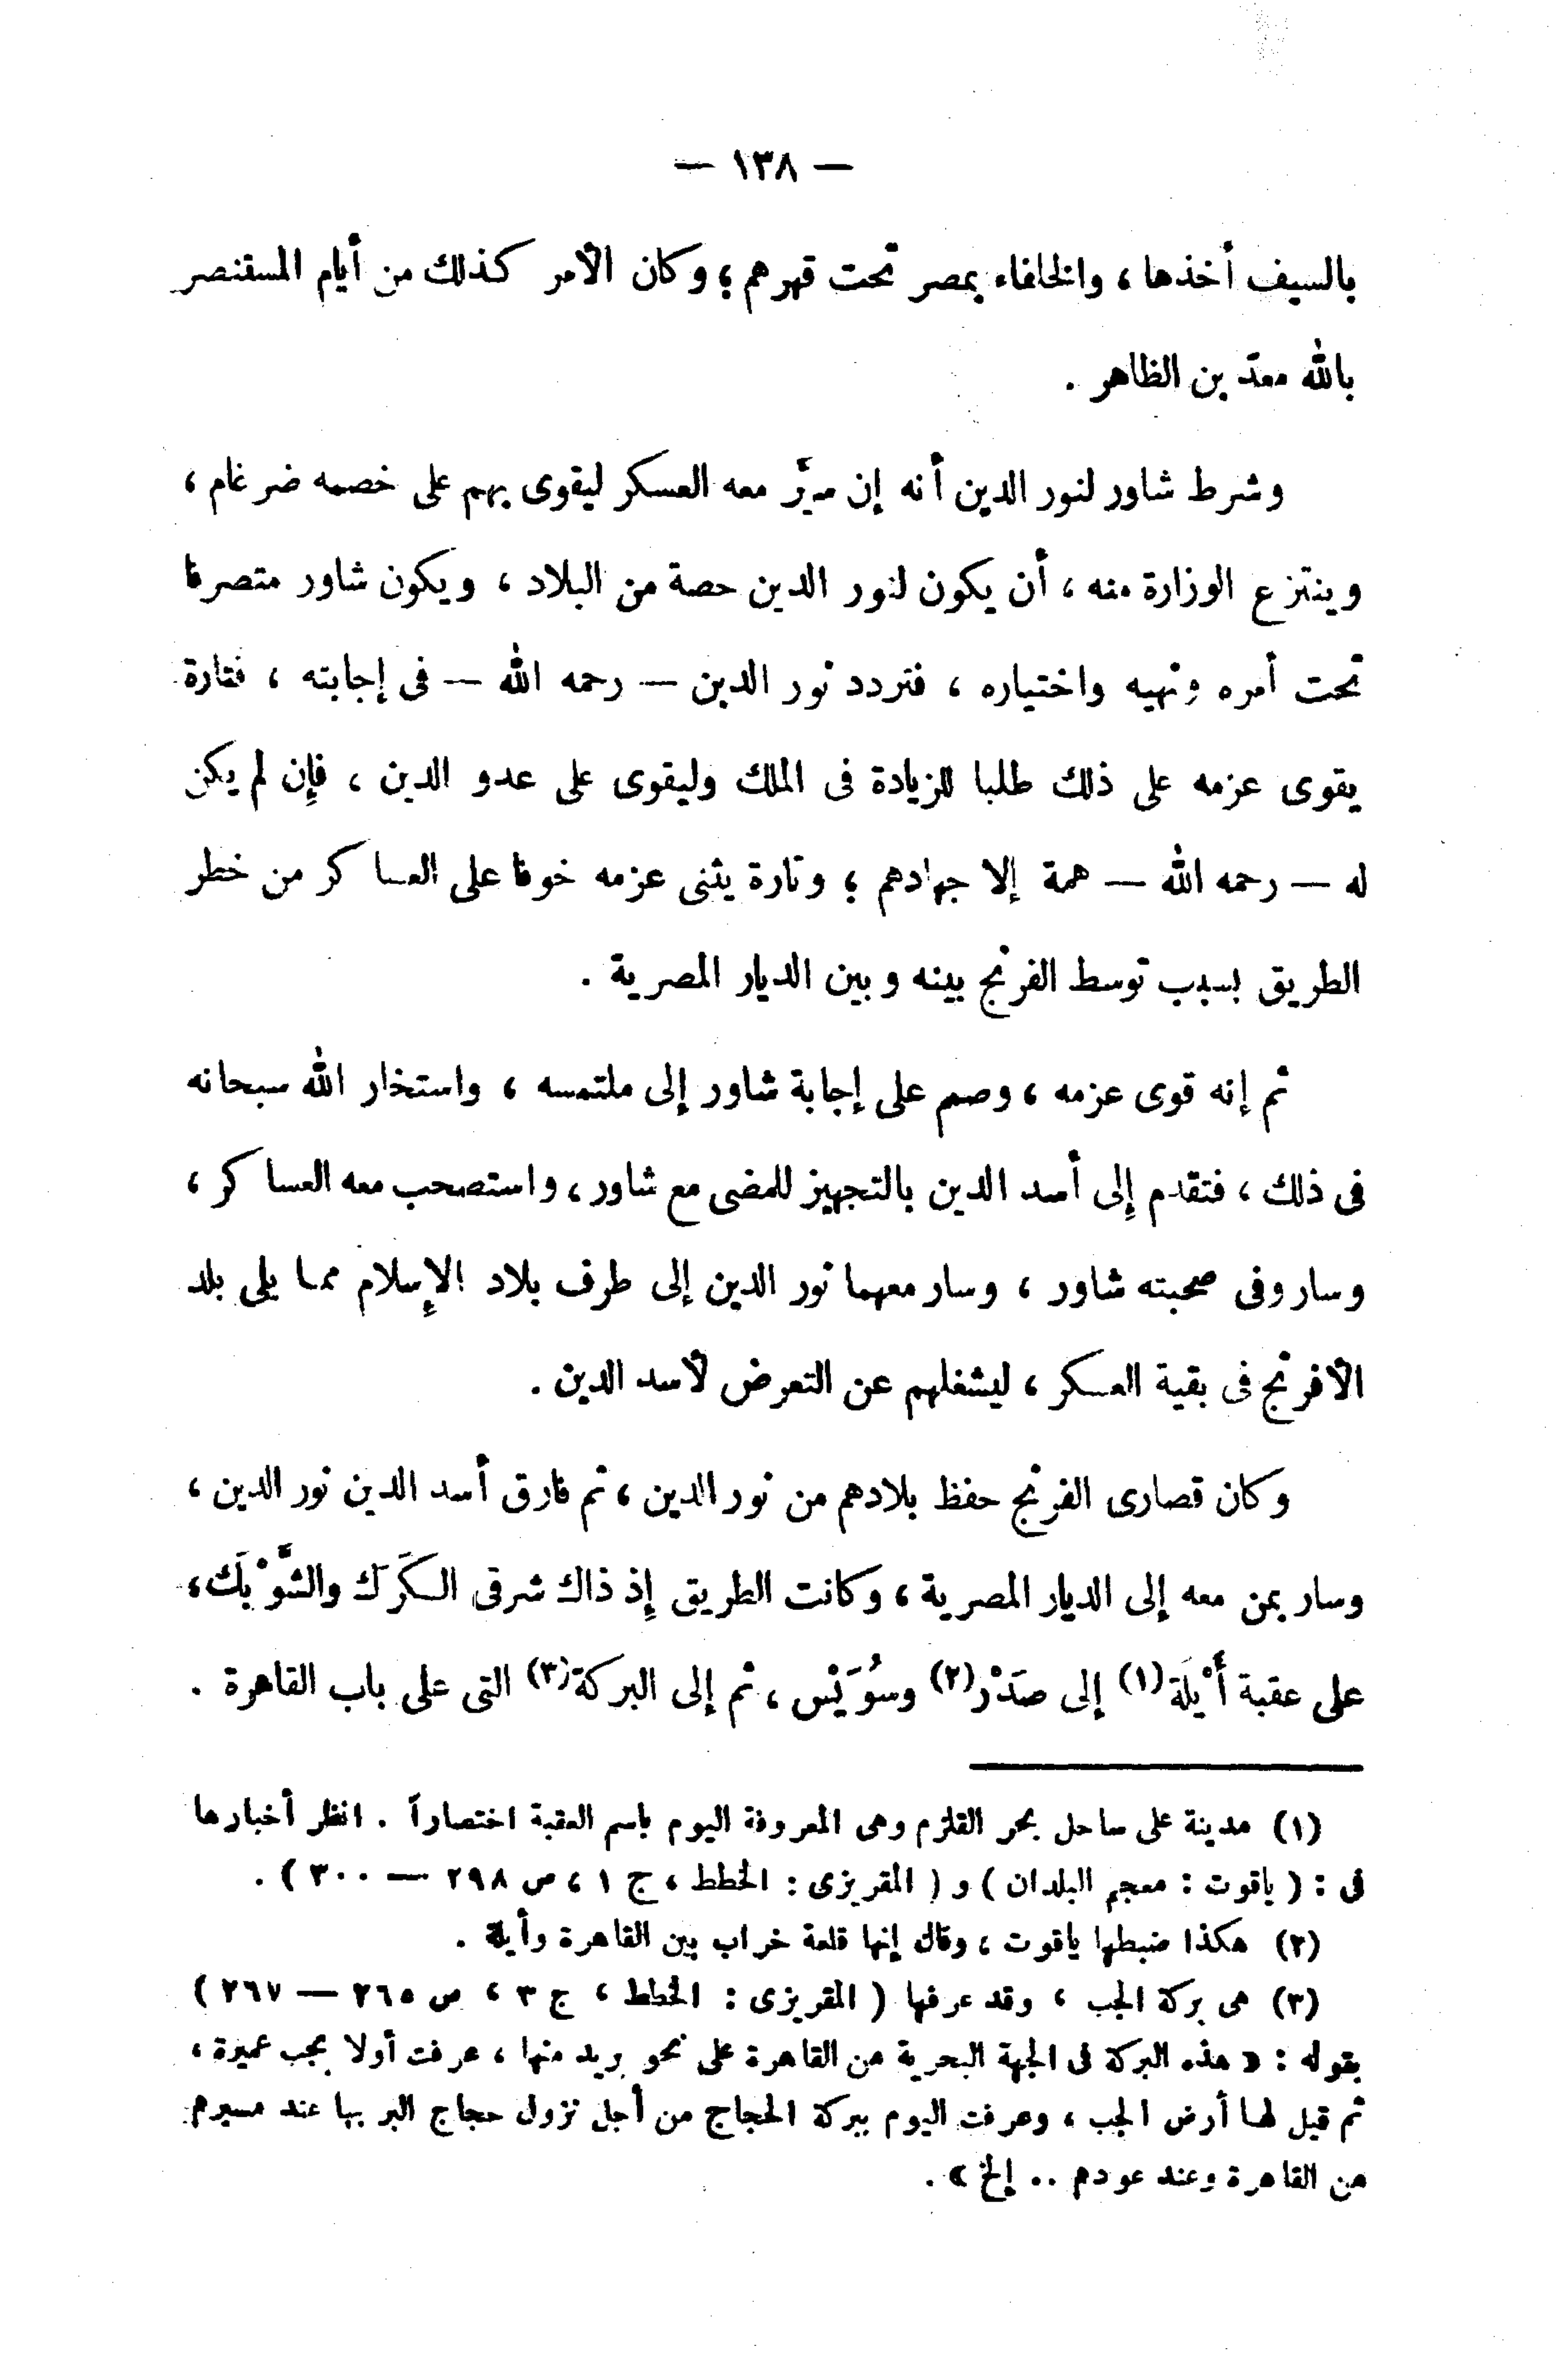 — ١٣٨ —
بالسيف أخذها ، والخلفاء بمصر تحت قهرهم ؛ وكان الأمر كذلك من أيام المستنصر
بالله معدّ بن الظاهر .
وشرط شاور لنور الدين أنه إن سيَّر معه العسكر ليقوى بهم على خصمه ضرغام ،
وينتزع الوزارة منه ، أن يكون لنور الدين حصة من البلاد ، ويكون شاور متصرفا
تحت أمره ونهيه واختياره ، فتردد نور الدين — رحمه الله — فى إجابته ، فتارة
يقوى عزمه على ذلك طلبا للزيادة فى الملك وليقوى على عدو الدين ، فإن لم يكن
له — رحمه الله — همة إلا جهادهم ؛ وتارة يثنى عزمه خوفا على العساكر من خطر
الطريق بسبب توسط الفرنج بينه وبين الديار المصرية .
ثم إنه قوى عزمه ، وصمم على إجابة شاور إلى ملتمسه ، واستخار الله سبحانه
فى ذلك ، فتقدم إلى أسد الدين بالتجهيز للمضى مع شاور ، واستصحب معه العساكر ،
وسار وفى صحبته شاور ، وسار معهما نور الدين إلى طرف بلاد الإسلام مما يلى بلد
الأفرنج فى بقية العسكر ، ليشغلهم عن التعرض لأسد الدين .
وكان قصارى الفرنج حفظ بلادهم من نور الدين ، ثم فارق أسد الدين نور الدين ،
وسار بمن معه إلى الديار المصرية ، وكانت الطريق إذ ذاك شرقى الكَرَك والشَّوْبَك ،
على عقبة أَيْلَة (١) إلى صَدْر (٢) وسُوَيْس ، ثم إلى البركة (٣) التى على باب القاهرة .
(١) مدينة على ساحل بحر القلزم وهى المعروفة اليوم باسم العقبة اختصاراً . انظر أخبارها
فى : ( ياقوت : معجم البلدان ) و ( المقريزى : الخطط ، ج ١ ، ص ٢٩٨ — ٣٠٠ ) .
(٢) هكذا ضبطها ياقوت ، وقال إنها قلعة خراب بين القاهرة وأيلة .
(٣) هى بركة الجب ، وقد عرفها ( المقريزى : الخطط ، ج ٣ ، ص ٢٦٥ — ٢٦٧ )
بقوله : « هذه البركة فى الجهة البحرية من القاهرة على نحو بريد منها ، عرفت أولا بجب عميرة ،
ثم قيل لها أرض الجب ، وعرفت اليوم ببركة الحجاج من أجل نزول حجاج البر بها عند مسيرهم
من القاهرة وعند عودهم .. إلخ » .